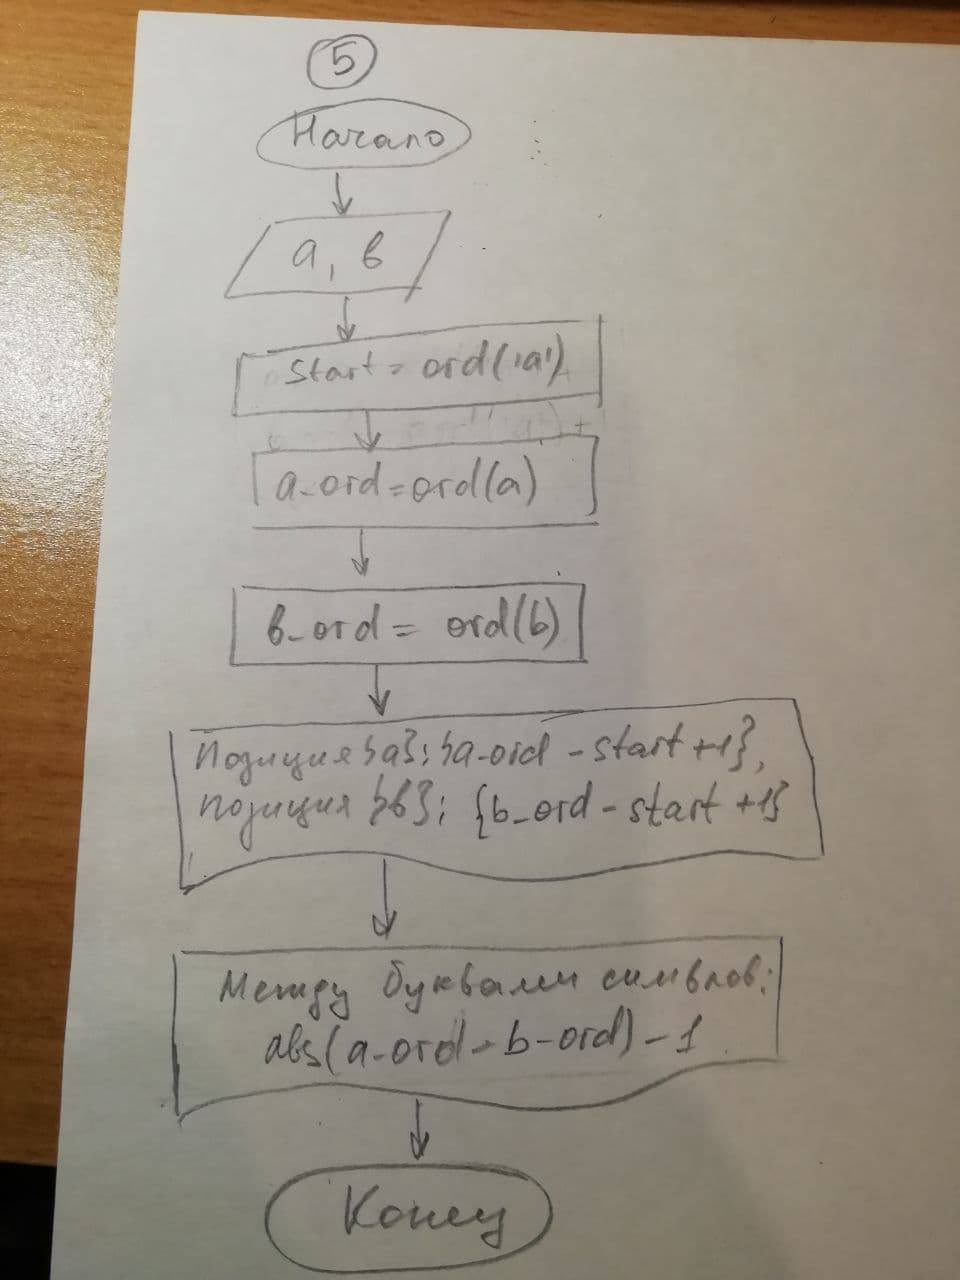 5
Начало
a, в
start = ord('a')
a_ord = ord(a)
в_ord = ord(b)
Позиция {a}: {a_ord - start + 1},
позиция {в}: {b_ord - start + 1}
Между буквами символов:
abs(a_ord - b_ord) - 1
Конец